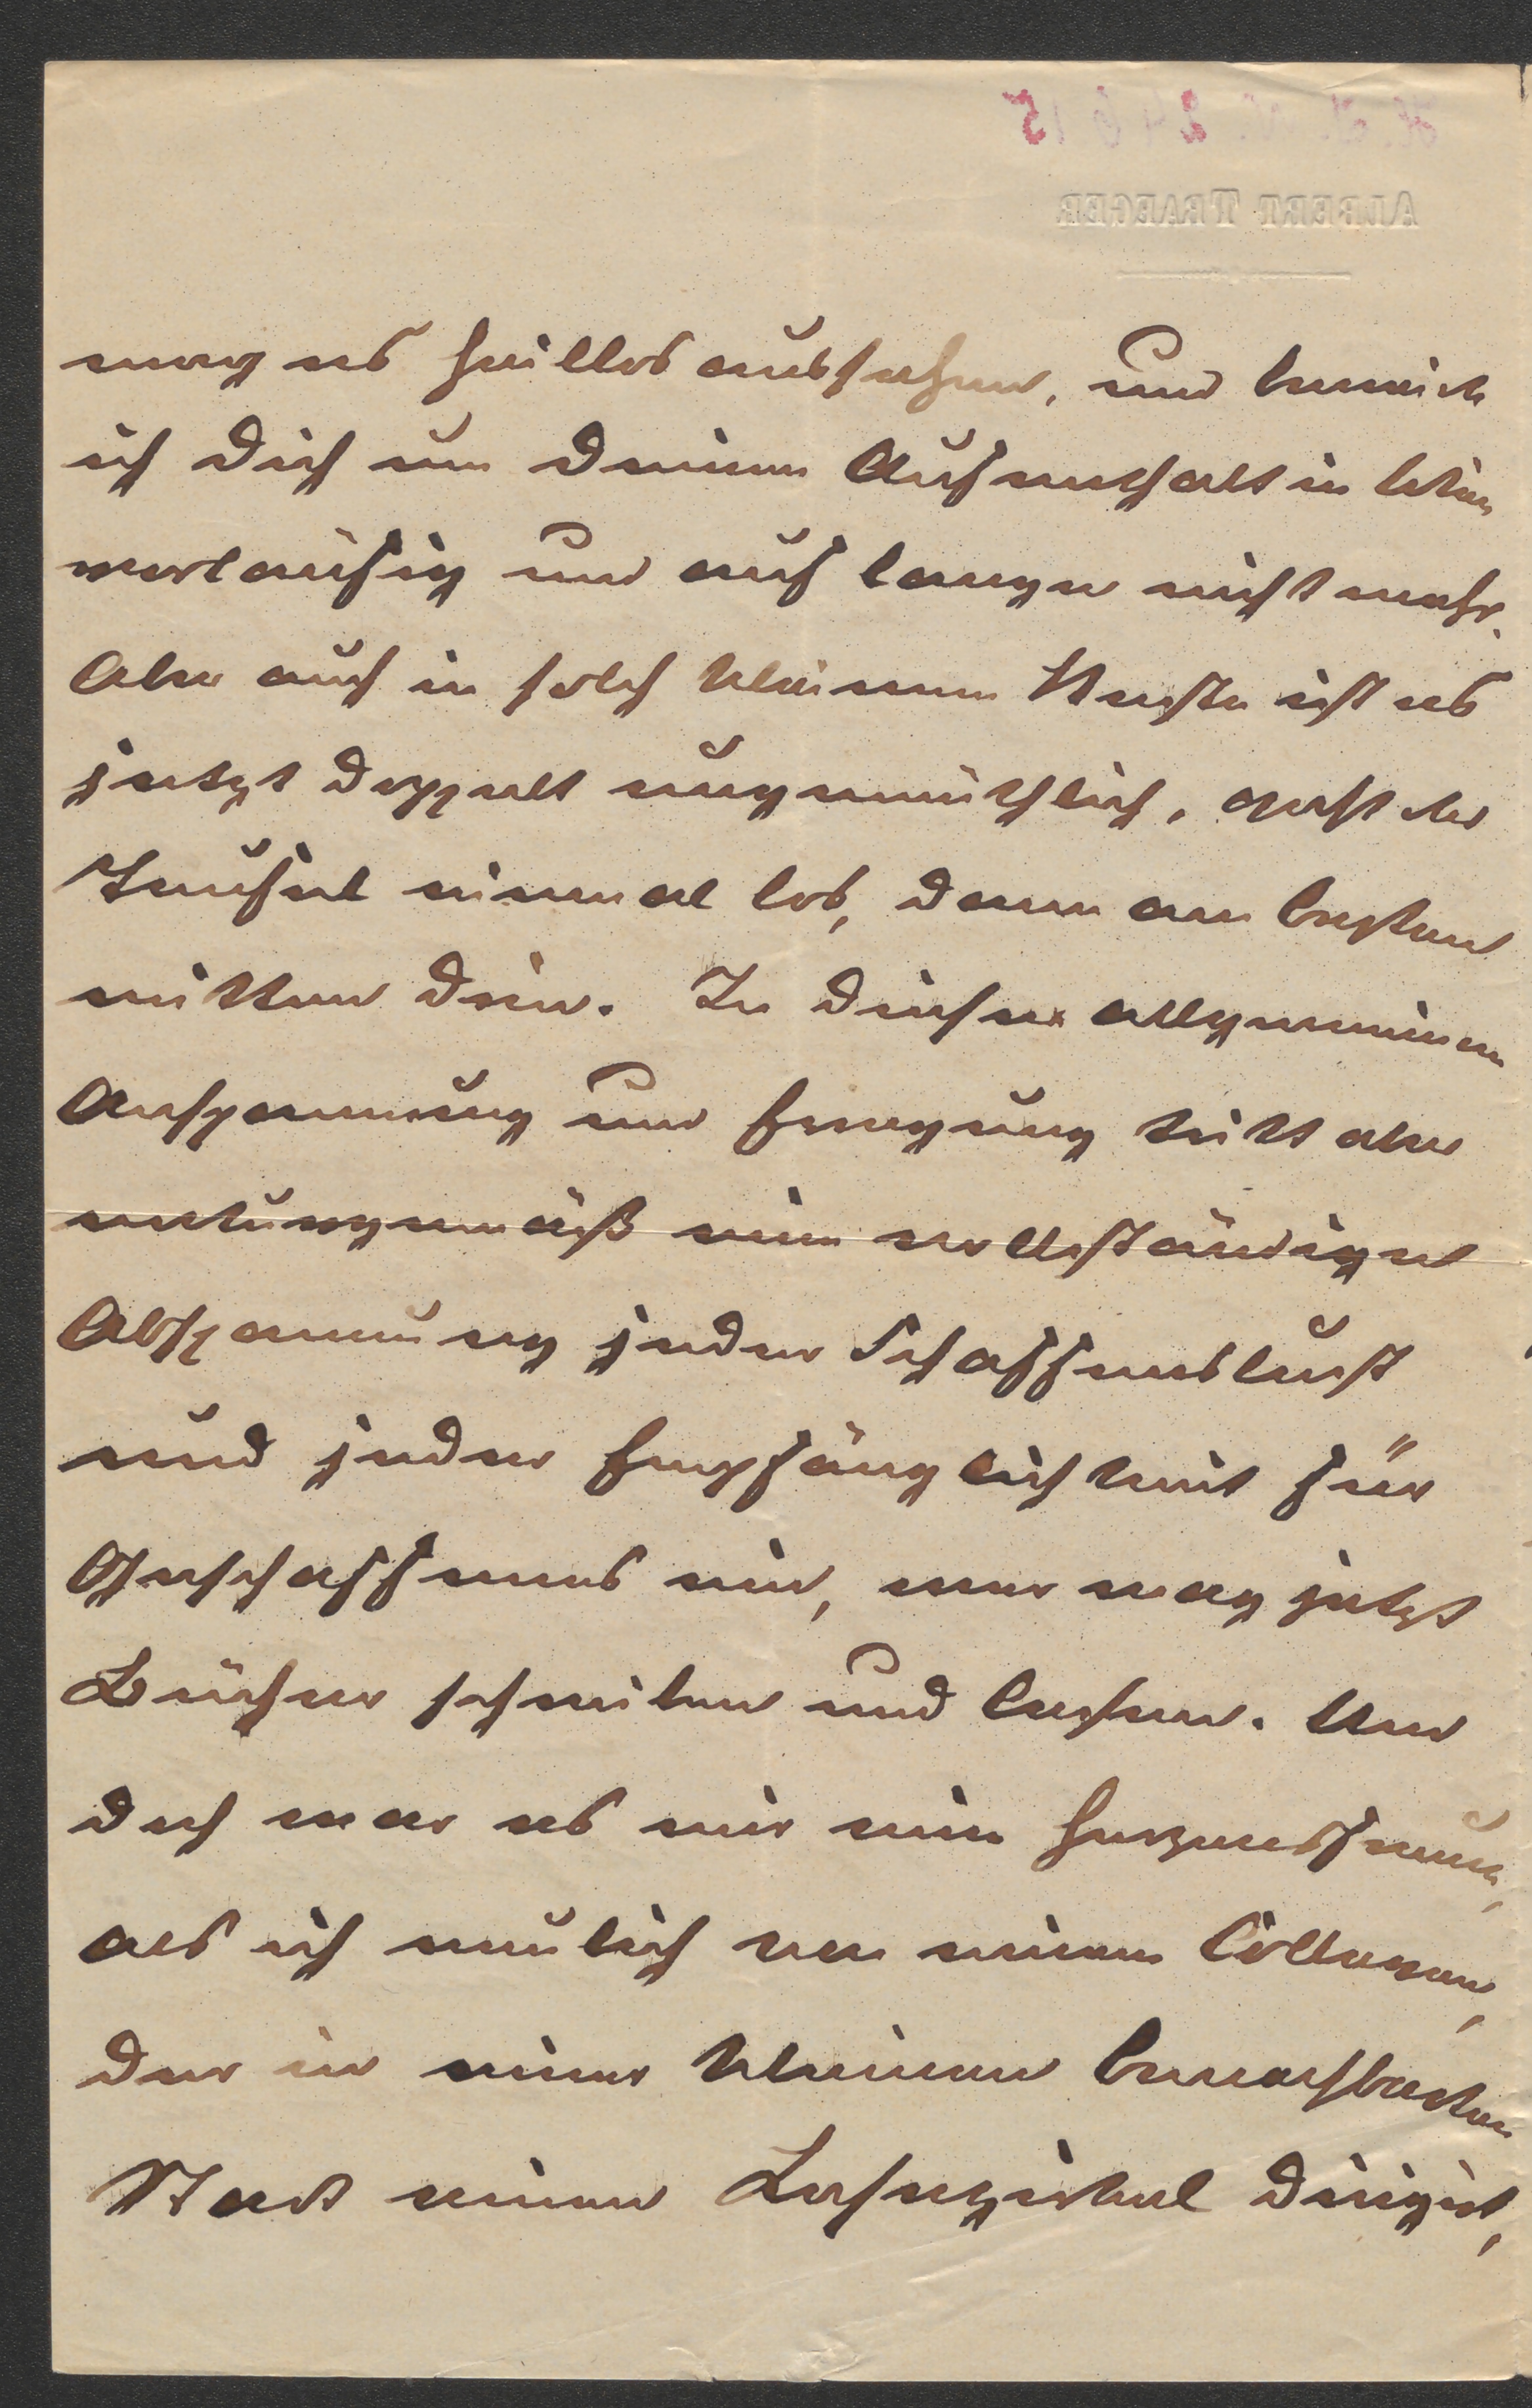 H. I. N. 24615
ALBERT TRAEGER
mag es heillos aussehen, und beneide
ich Dich um Deinen Aufenthalt in Wien
vorläufig und auf lange nicht mehr.
Aber auch in solch kleinem Neste ist es
jetzt doppelt ungemüthlich, geht der
Teufel einmal los, dann am besten
mitten drin. In dieser allgemeinen
Anspannung und Erregung tritt aber
naturgemäß eine vollständige
Abspannung jeder Schaffenslust
und jeder Empfänglichkeit für
Geschaffenes ein, wer mag jetzt
Bücher schreiben und lesen. Und
doch war es mir eine Herzensfreude,
als ich neulich von einem Collegen,
der in einer kleinen benachbarten
Stadt einen Lesezirkel dirigirt,